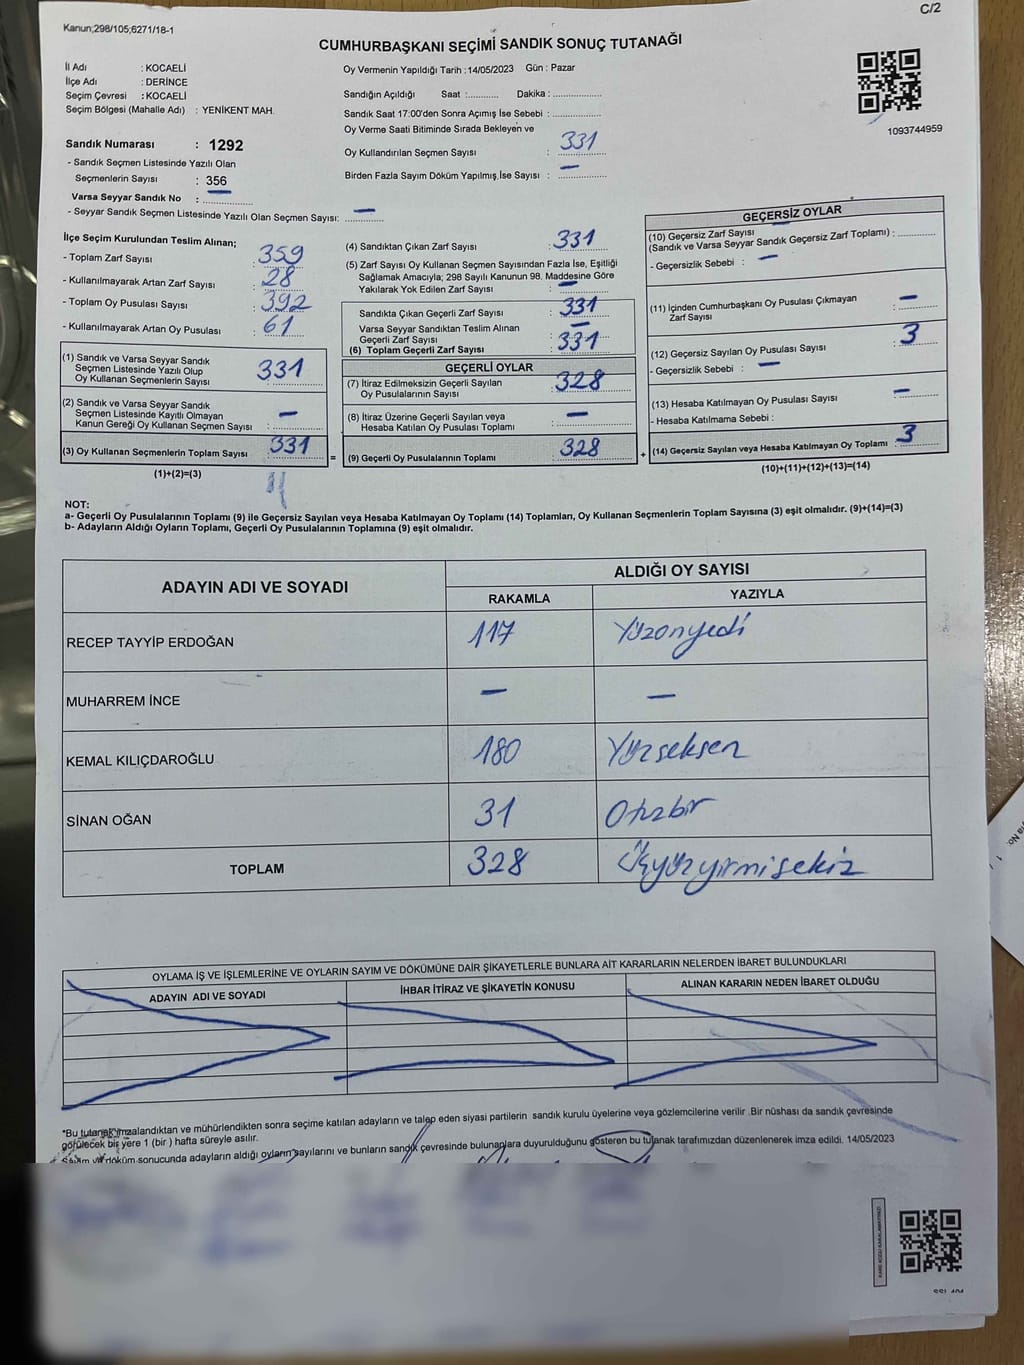 C/2
Kanun;298/105;6271/18-1
CUMHURBAŞKANI SEÇİMİ SANDIK SONUÇ TUTANAĞI
İl Adı : KOCAELİ
İlçe Adı : DERİNCE
Seçim Çevresi : KOCAELİ
Seçim Bölgesi (Mahalle Adı) : YENİKENT MAH.
Sandık Numarası : 1292
- Sandık Seçmen Listesinde Yazılı Olan
Seçmenlerin Sayısı : 356
Varsa Seyyar Sandık No : —
- Seyyar Sandık Seçmen Listesinde Yazılı Olan Seçmen Sayısı: —
Oy Vermenin Yapıldığı Tarih : 14/05/2023 Gün : Pazar
Sandığın Açıldığı Saat :........... Dakika : ...............
Sandık Saat 17:00'den Sonra Açımış İse Sebebi : ...............
Oy Verme Saati Bitiminde Sırada Bekleyen ve
Oy Kullandırılan Seçmen Sayısı : 331
Birden Fazla Sayım Döküm Yapılmış,İse Sayısı : —
1093744959
İlçe Seçim Kurulundan Teslim Alınan;
- Toplam Zarf Sayısı : 359
- Kullanılmayarak Artan Zarf Sayısı : 28
- Toplam Oy Pusulası Sayısı : 392
- Kullanılmayarak Artan Oy Pusulası : 61
(1) Sandık ve Varsa Seyyar Sandık
Seçmen Listesinde Yazılı Olup
Oy Kullanan Seçmenlerin Sayısı : 331
(2) Sandık ve Varsa Seyyar Sandık
Seçmen Listesinde Kayıtlı Olmayan
Kanun Gereği Oy Kullanan Seçmen Sayısı : —
(3) Oy Kullanan Seçmenlerin Toplam Sayısı : 331
(1)+(2)=(3)
=
(4) Sandıktan Çıkan Zarf Sayısı : 331
(5) Zarf Sayısı Oy Kullanan Seçmen Sayısından Fazla İse, Eşitliği
Sağlamak Amacıyla; 298 Sayılı Kanunun 98. Maddesine Göre
Yakılarak Yok Edilen Zarf Sayısı : —
Sandıkta Çıkan Geçerli Zarf Sayısı : 331
Varsa Seyyar Sandıktan Teslim Alınan
Geçerli Zarf Sayısı : —
(6) Toplam Geçerli Zarf Sayısı : 331
GEÇERLİ OYLAR
(7) İtiraz Edilmeksizin Geçerli Sayılan
Oy Pusulalarının Sayısı : 328
(8) İtiraz Üzerine Geçerli Sayılan veya
Hesaba Katılan Oy Pusulası Toplamı : —
(9) Geçerli Oy Pusulalarının Toplamı : 328
+
GEÇERSİZ OYLAR
(10) Geçersiz Zarf Sayısı
(Sandık ve Varsa Seyyar Sandık Geçersiz Zarf Toplamı) : ...........
- Geçersizlik Sebebi : —
(11) İçinden Cumhurbaşkanı Oy Pusulası Çıkmayan
Zarf Sayısı : —
(12) Geçersiz Sayılan Oy Pusulası Sayısı : 3
- Geçersizlik Sebebi : —
(13) Hesaba Katılmayan Oy Pusulası Sayısı : —
- Hesaba Katılmama Sebebi :
(14) Geçersiz Sayılan veya Hesaba Katılmayan Oy Toplamı : 3
(10)+(11)+(12)+(13)=(14)
NOT:
a- Geçerli Oy Pusulalarının Toplamı (9) ile Geçersiz Sayılan veya Hesaba Katılmayan Oy Toplamı (14) Toplamları, Oy Kullanan Seçmenlerin Toplam Sayısına (3) eşit olmalıdır. (9)+(14)=(3)
b- Adayların Aldığı Oyların Toplamı, Geçerli Oy Pusulalarının Toplamına (9) eşit olmalıdır.
ADAYIN ADI VE SOYADI
ALDIĞI OY SAYISI
RAKAMLA YAZIYLA
RECEP TAYYİP ERDOĞAN 117 Yüzonyedi
MUHARREM İNCE — —
KEMAL KILIÇDAROĞLU 180 Yüzseksen
SİNAN OĞAN 31 Otuzbir
TOPLAM 328 Üçyüzyirmisekiz
OYLAMA İŞ VE İŞLEMLERİNE VE OYLARIN SAYIM VE DÖKÜMÜNE DAİR ŞİKAYETLERLE BUNLARA AİT KARARLARIN NELERDEN İBARET BULUNDUKLARI
ADAYIN ADI VE SOYADI İHBAR İTİRAZ VE ŞİKAYETİN KONUSU ALINAN KARARIN NEDEN İBARET OLDUĞU
*Bu tutanak imzalandıktan ve mühürlendikten sonra seçime katılan adayların ve talep eden siyasi partilerin sandık kurulu üyelerine veya gözlemcilerine verilir .Bir nüshası da sandık çevresinde
görülecek bir yere 1 (bir ) hafta süreyle asılır.
Sayım ve döküm sonucunda adayların aldığı oyların sayılarını ve bunların sandık çevresinde bulunanlara duyurulduğunu gösteren bu tutanak tarafımızdan düzenlenerek imza edildi. 14/05/2023